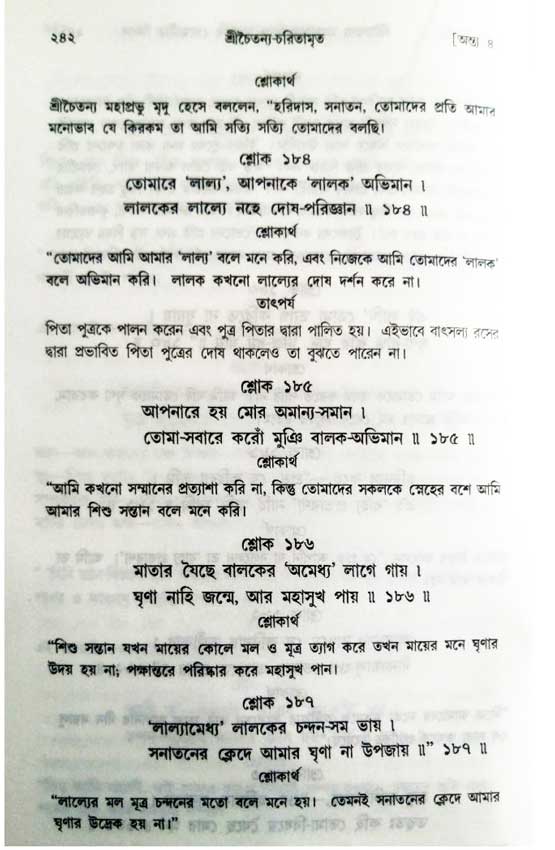 ২৪২ শ্রীচৈতন্য-চরিতামৃত [অন্ত্য ৪
শ্লোকার্থ
শ্রীচৈতন্য মহাপ্রভু মৃদু হেসে বললেন, “হরিদাস, সনাতন, তোমাদের প্রতি আমার
মনোভাব যে কিরকম তা আমি সত্যি সত্যি তোমাদের বলছি।
শ্লোক ১৮৪
তোমারে ‘লাল্য’, আপনাকে ‘লালক’ অভিমান ।
লালকের লাল্যে নহে দোষ-পরিজ্ঞান ॥ ১৮৪ ॥
শ্লোকার্থ
“তোমাদের আমি আমার ‘লাল্য’ বলে মনে করি, এবং নিজেকে আমি তোমাদের ‘লালক’
বলে অভিমান করি। লালক কখনো লাল্যের দোষ দর্শন করে না।
তাৎপর্য
পিতা পুত্রকে পালন করেন এবং পুত্র পিতার দ্বারা পালিত হয়। এইভাবে বাৎসল্য রসের
দ্বারা প্রভাবিত পিতা পুত্রের দোষ থাকলেও তা বুঝতে পারেন না।
শ্লোক ১৮৫
আপনারে হয় মোর অমান্য-সমান ।
তোমা-সবারে করোঁ মুঞি বালক-অভিমান ॥ ১৮৫ ॥
শ্লোকার্থ
“আমি কখনো সম্মানের প্রত্যাশা করি না, কিন্তু তোমাদের সকলকে স্নেহের বশে আমি
আমার শিশু সন্তান বলে মনে করি।
শ্লোক ১৮৬
মাতার যৈছে বালকের ‘অমেধ্য’ লাগে গায় ।
ঘৃণা নাহি জন্মে, আর মহাসুখ পায় ॥ ১৮৬ ॥
শ্লোকার্থ
“শিশু সন্তান যখন মায়ের কোলে মল ও মূত্র ত্যাগ করে তখন মায়ের মনে ঘৃণার
উদয় হয় না; পক্ষান্তরে পরিষ্কার করে মহাসুখ পান।
শ্লোক ১৮৭
‘লাল্যামেধ্য’ লালকের চন্দন-সম ভায় ।
সনাতনের ক্লেদে আমার ঘৃণা না উপজায় ॥” ১৮৭ ॥
শ্লোকার্থ
“লাল্যের মল মূত্র চন্দনের মতো বলে মনে হয়। তেমনই সনাতনের ক্লেদে আমার
ঘৃণার উদ্রেক হয় না।”